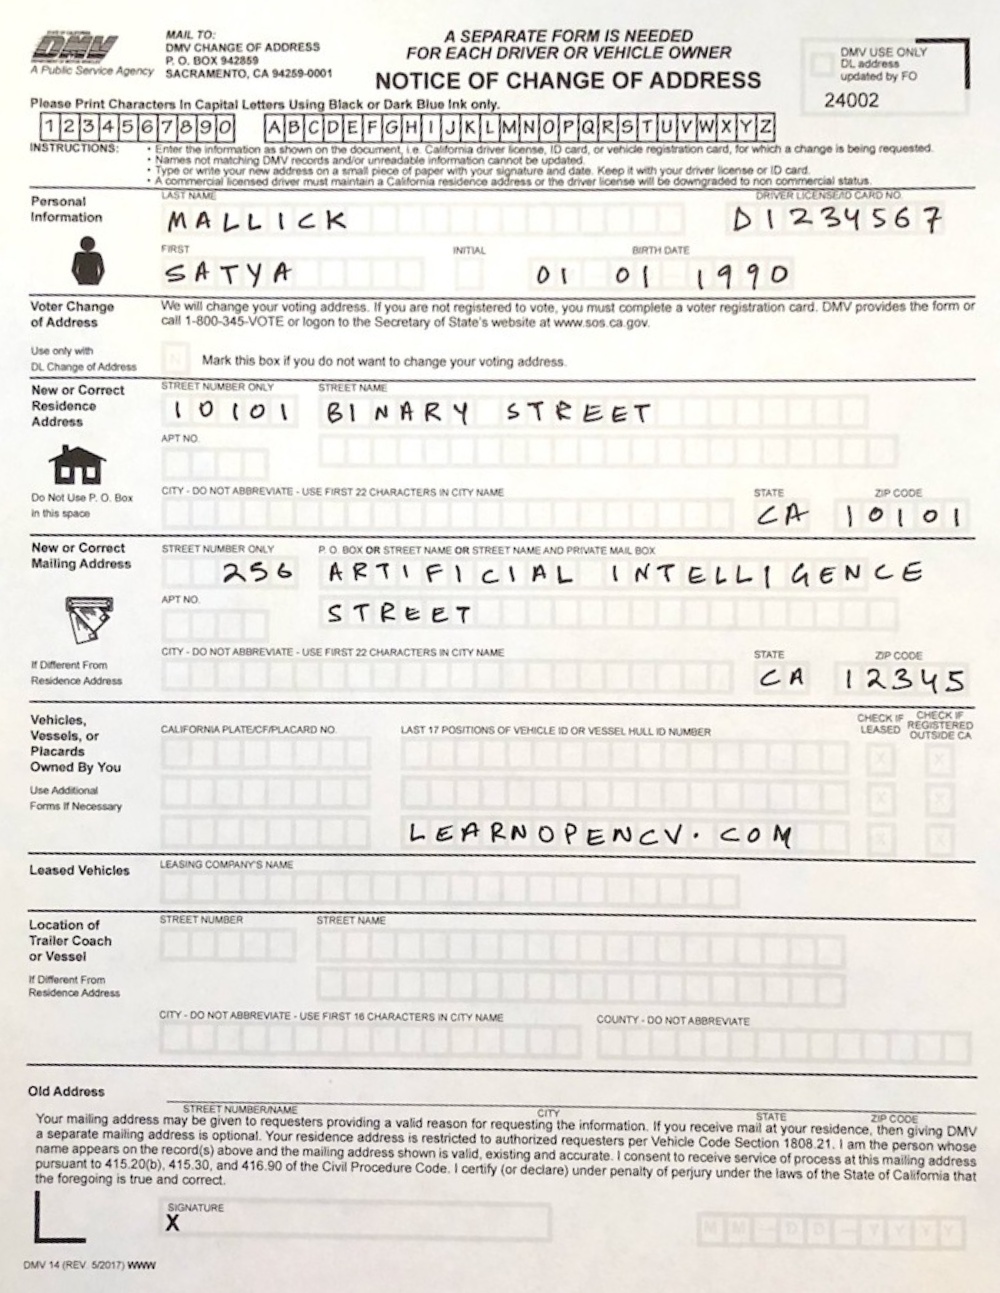 STATE OF CALIFORNIA
DMV
A Public Service Agency
MAIL TO:
DMV CHANGE OF ADDRESS
P. O. BOX 942859
SACRAMENTO, CA 94259-0001
A SEPARATE FORM IS NEEDED
FOR EACH DRIVER OR VEHICLE OWNER
NOTICE OF CHANGE OF ADDRESS
DMV USE ONLY
DL address
updated by FO
24002
Please Print Characters In Capital Letters Using Black or Dark Blue Ink only.
1 2 3 4 5 6 7 8 9 0 A B C D E F G H I J K L M N O P Q R S T U V W X Y Z
INSTRUCTIONS: • Enter the information as shown on the document, i.e. California driver license, ID card, or vehicle registration card, for which a change is being requested.
• Names not matching DMV records and/or unreadable information cannot be updated.
• Type or write your new address on a small piece of paper with your signature and date. Keep it with your driver license or ID card.
• A commercial licensed driver must maintain a California residence address or the driver license will be downgraded to non commercial status.
Personal
Information
LAST NAME DRIVER LICENSE/ID CARD NO.
MALLICK D1234567
FIRST INITIAL BIRTH DATE
SATYA 01 01 1990
Voter Change
of Address
We will change your voting address. If you are not registered to vote, you must complete a voter registration card. DMV provides the form or
call 1-800-345-VOTE or logon to the Secretary of State's website at www.sos.ca.gov.
Use only with
DL Change of Address
N Mark this box if you do not want to change your voting address.
New or Correct
Residence
Address
STREET NUMBER ONLY STREET NAME
10101 BINARY STREET
APT NO.
Do Not Use P. O. Box
in this space
CITY - DO NOT ABBREVIATE - USE FIRST 22 CHARACTERS IN CITY NAME STATE ZIP CODE
CA 10101
New or Correct
Mailing Address
STREET NUMBER ONLY P. O. BOX OR STREET NAME OR STREET NAME AND PRIVATE MAIL BOX
256 ARTIFICIAL INTELLIGENCE
APT NO.
STREET
If Different From
Residence Address
CITY - DO NOT ABBREVIATE - USE FIRST 22 CHARACTERS IN CITY NAME STATE ZIP CODE
CA 12345
Vehicles,
Vessels, or
Placards
Owned By You
Use Additional
Forms If Necessary
CALIFORNIA PLATE/CF/PLACARD NO. LAST 17 POSITIONS OF VEHICLE ID OR VESSEL HULL ID NUMBER
CHECK IF
LEASED
CHECK IF
REGISTERED
OUTSIDE CA
X X
X X
LEARNOPENCV.COM X X
Leased Vehicles
LEASING COMPANY'S NAME
Location of
Trailer Coach
or Vessel
If Different From
Residence Address
STREET NUMBER STREET NAME
CITY - DO NOT ABBREVIATE - USE FIRST 16 CHARACTERS IN CITY NAME COUNTY - DO NOT ABBREVIATE
Old Address
STREET NUMBER/NAME CITY STATE ZIP CODE
Your mailing address may be given to requesters providing a valid reason for requesting the information. If you receive mail at your residence, then giving DMV
a separate mailing address is optional. Your residence address is restricted to authorized requesters per Vehicle Code Section 1808.21. I am the person whose
name appears on the record(s) above and the mailing address shown is valid, existing and accurate. I consent to receive service of process at this mailing address
pursuant to 415.20(b), 415.30, and 416.90 of the Civil Procedure Code. I certify (or declare) under penalty of perjury under the laws of the State of California that
the foregoing is true and correct.
SIGNATURE
X
MM-DD-YYYY
DMV 14 (REV. 5/2017) WWW